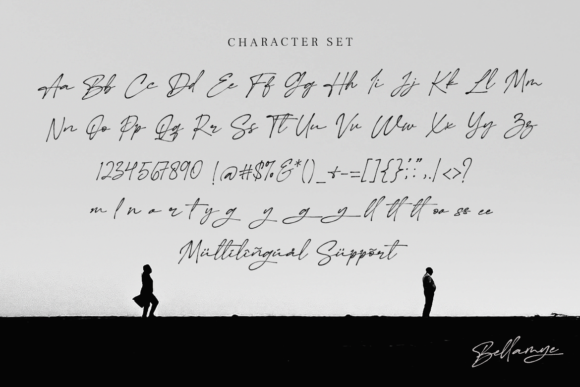 CHARACTER SET
Aa Bb Cc Dd Ee Ff Gg Hh Ii Jj Kk Ll Mm
Nn Oo Pp Qq Rr Ss Tt Uu Vv Ww Xx Yy Zz
1234567890 !@#$%&*()_+-=[]{};:'",.|<>?
m l n a r t y g y g y ll tt tt oo ss ee
Mültilińgúál Süppõrt
Bellamye